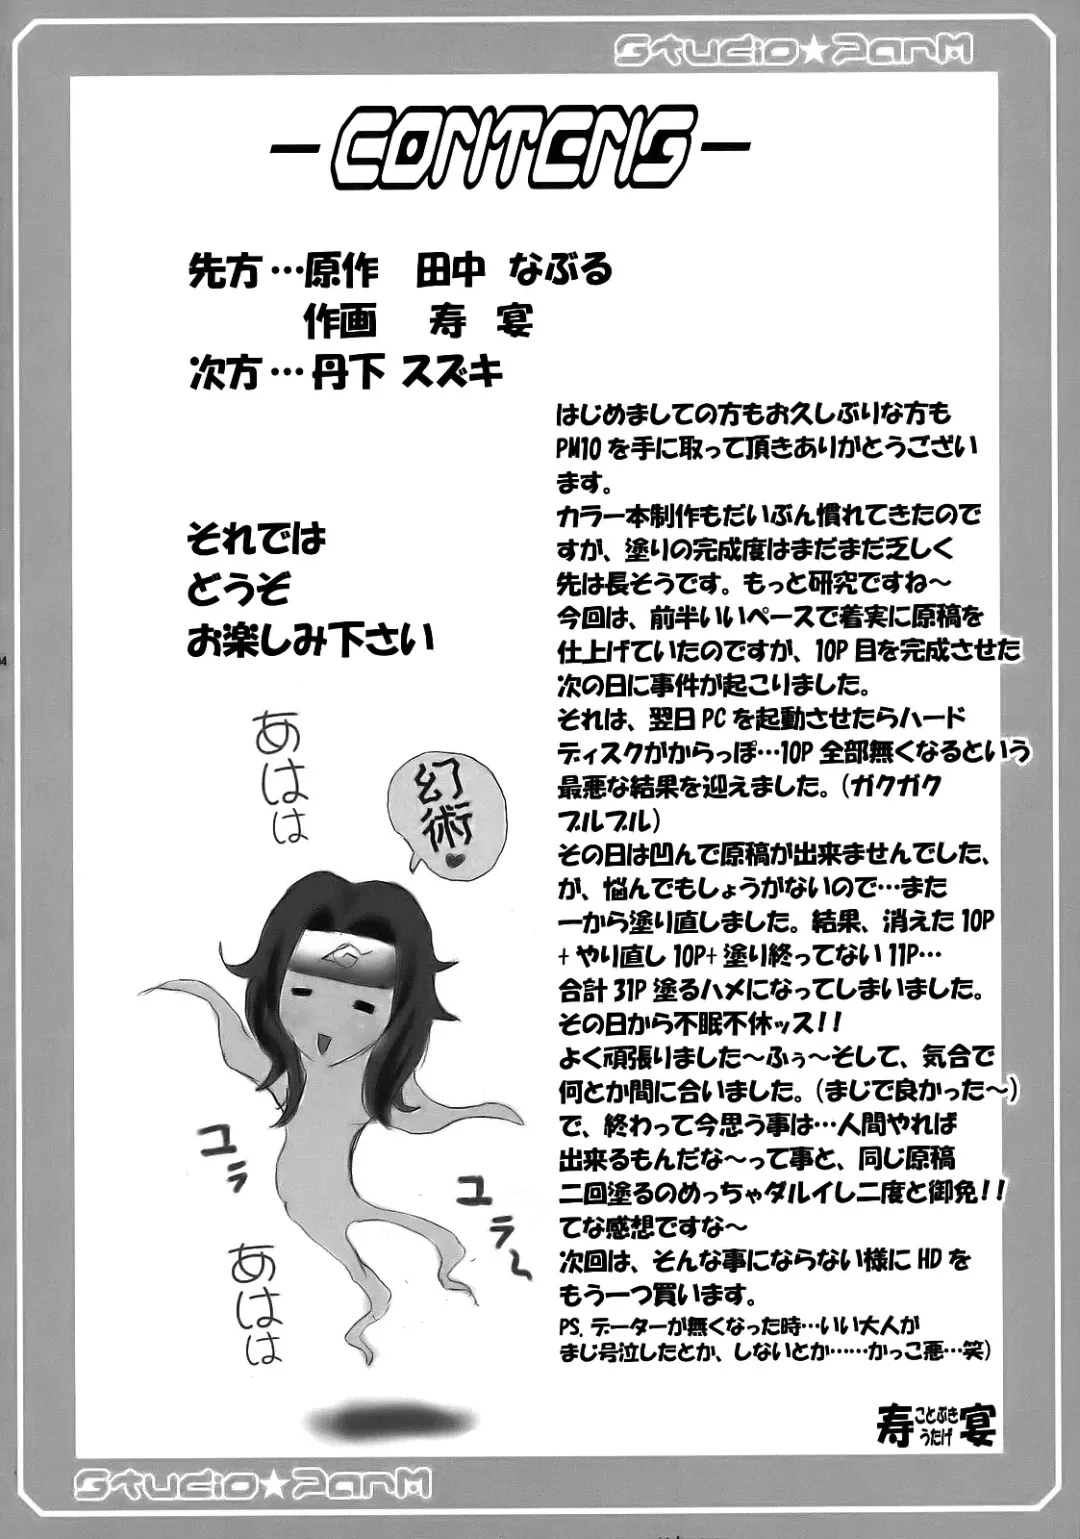 Studio★ParM
-CONTENS-
先方…原作 田中 なぶる
作画 寿 宴
次方…丹下 スズキ
それでは
どうぞ
お楽しみ下さい
はじめましての方もお久しぶりな方も
PM10を手に取って頂きありがとうござい
ます。
カラー本制作もだいぶん慣れてきたので
すが、塗りの完成度はまだまだ乏しく
先は長そうです。もっと研究ですね～
今回は、前半いいペースで着実に原稿を
仕上げていたのですが、10P目を完成させた
次の日に事件が起こりました。
それは、翌日PCを起動させたらハード
ディスクがからっぽ…10P全部無くなるという
最悪な結果を迎えました。(ガクガク
ブルブル)
その日は凹んで原稿が出来ませんでした、
が、悩んでもしょうがないので…また
一から塗り直しました。結果、消えた10P
+やり直し10P+塗り終ってない11P…
合計31P塗るハメになってしまいました。
その日から不眠不休ッス!!
よく頑張りました～ふぅ～そして、気合で
何とか間に合いました。(まじで良かった～)
で、終わって今思う事は…人間やれば
出来るもんだな～って事と、同じ原稿
二回塗るのめっちゃダルイし二度と御免!!
てな感想ですな～
次回は、そんな事にならない様にHDを
もう一つ買います。
PS.データーが無くなった時…いい大人が
まじ号泣したとか、しないとか……かっこ悪…笑)
寿ことぶき宴うたげ
あはは
幻術♥
ユラ
ユラ～
あはは
Studio★ParM